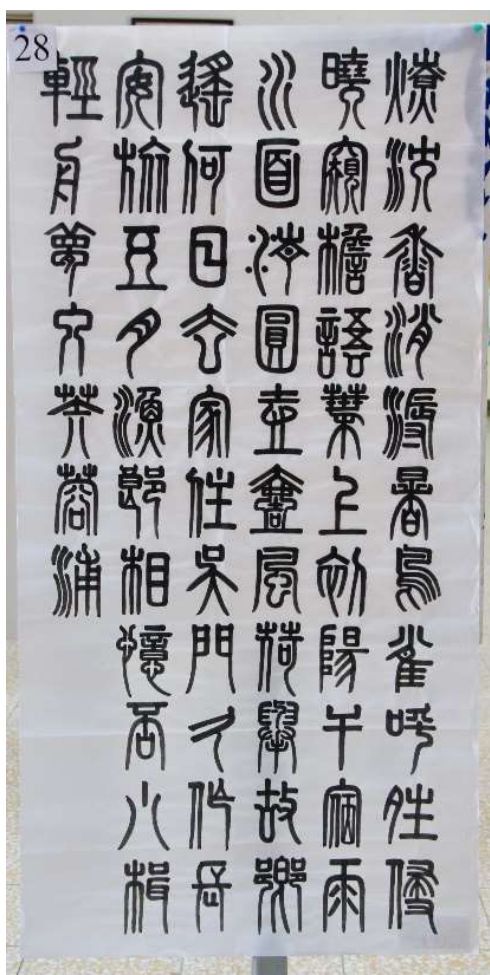 28
燎沈香消溽暑鳥雀呼晴侵
曉窺檐語葉上初陽干宿雨
水面清圓壹壹風荷舉故鄉
遙何日去家住吳門久作長
安旅五月漁郎相憶否小楫
輕舟夢入芙蓉浦